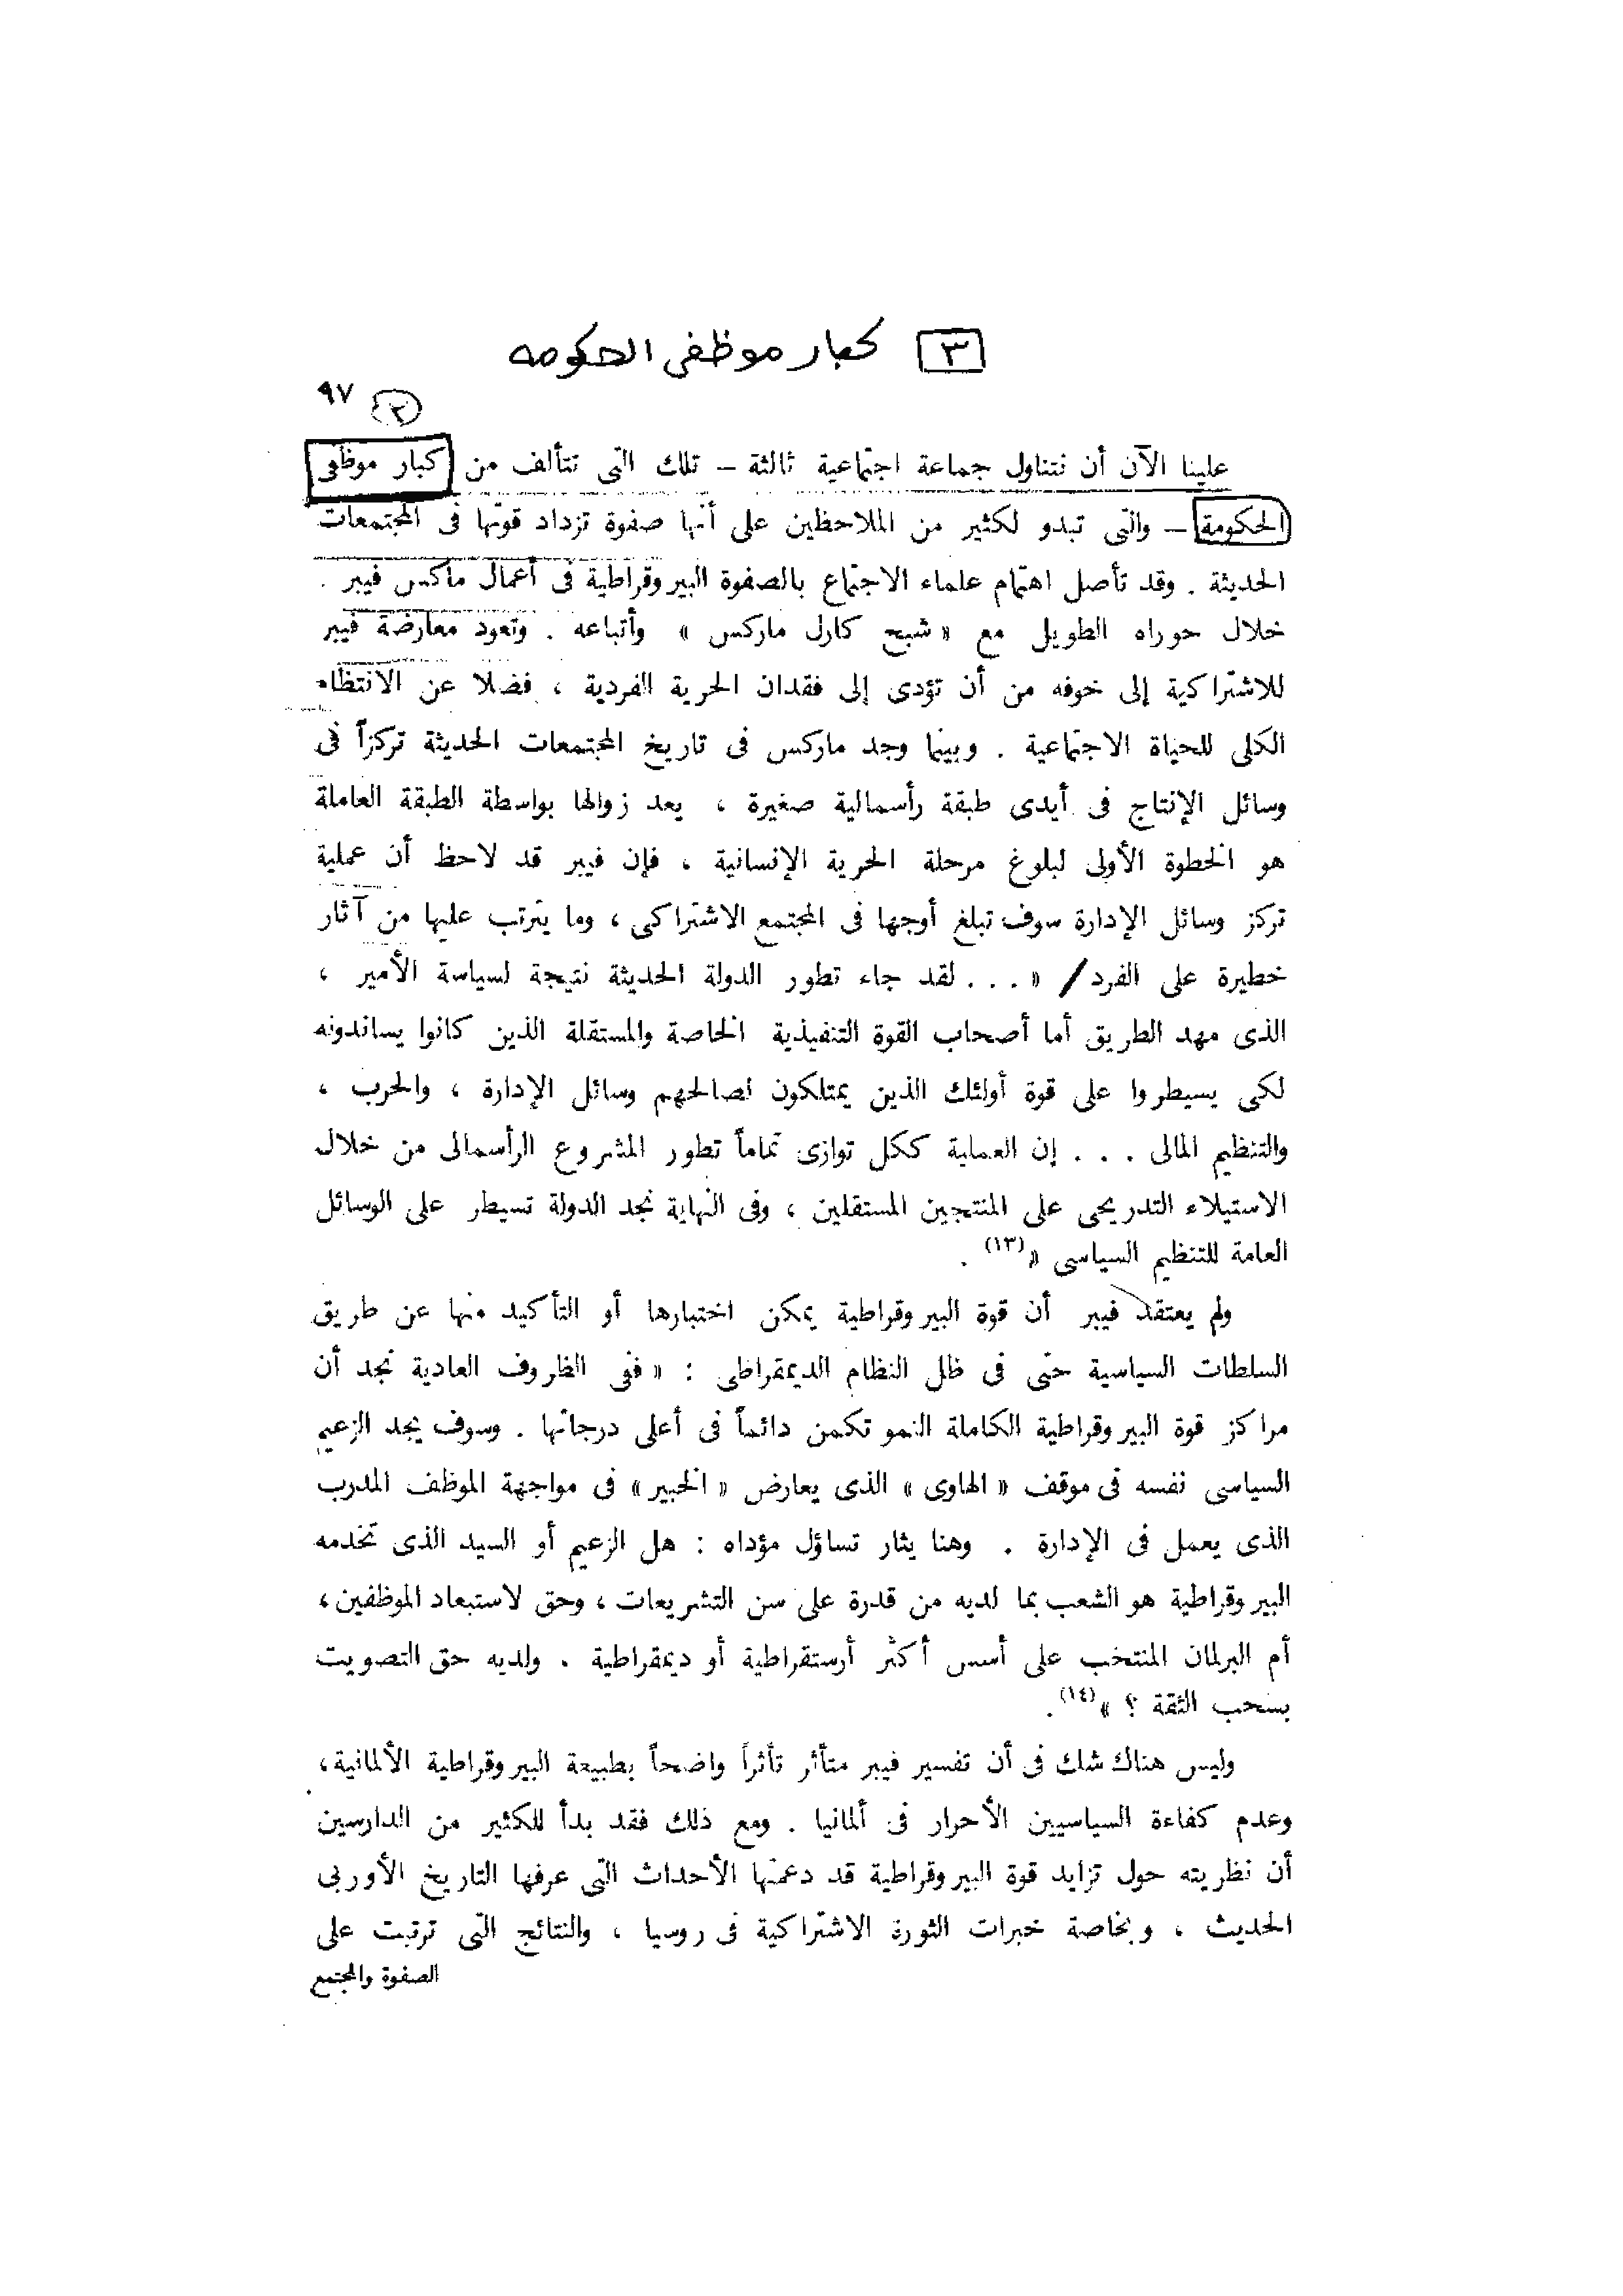 ٣ كبار موظفى الحكومه
٩٧
٢
علينا الآن أن نتناول جماعة اجتماعية ثالثة – تلك التى تتألف من كبار موظفى
الحكومة – والتى تبدو لكثير من الملاحظين على أنها صفوة تزداد قوتها فى المجتمعات
الحديثة . وقد تأصل اهتمام علماء الاجتماع بالصفوة البيروقراطية فى أعمال ماكس فيبر .
خلال حوراه الطويل مع « شبح كارل ماركس » وأتباعه . وتعود معارضة فيبر
للاشتراكية إلى خوفه من أن تؤدى إلى فقدان الحرية الفردية ، فضلا عن الانتظام
الكلى للحياة الاجتماعية . وبينما وجد ماركس فى تاريخ المجتمعات الحديثة تركزاً فى
وسائل الإنتاج فى أيدى طبقة رأسمالية صغيرة ، يعد زوالها بواسطة الطبقة العاملة
هو الخطوة الأولى لبلوغ مرحلة الحرية الإنسانية ، فإن فيبر قد لاحظ أن عملية
تركز وسائل الإدارة سوف تبلغ أوجها فى المجتمع الاشتراكى ، وما يترتب عليها من آثار
خطيرة على الفرد / « . . . لقد جاء تطور الدولة الحديثة نتيجة لسياسة الأمير ،
الذى مهد الطريق أما أصحاب القوة التنفيذية الخاصة والمستقلة الذين كانوا يساندونه
لكى يسيطروا على قوة أولئك الذين يمتلكون لصالحهم وسائل الإدارة ، والحرب ،
والتنظيم المالى . . . إن العملية ككل توازى تماماً تطور المشروع الرأسمالى من خلال
الاستيلاء التدريجى على المنتجين المستقلين ، وفى النهاية نجد الدولة تسيطر على الوسائل
العامة للتنظيم السياسى »(١٣) .
ولم يعتقد فيبر أن قوة البيروقراطية يمكن اختبارها أو التأكيد منها عن طريق
السلطات السياسية حتى فى ظل النظام الديمقراطى : « ففى الظروف العادية نجد أن
مراكز قوة البيروقراطية الكاملة النمو تكمن دائماً فى أعلى درجاتها . وسوف يجد الزعيم
السياسى نفسه فى موقف « الهاوى » الذى يعارض « الخبير » فى مواجهة الموظف المدرب
الذى يعمل فى الإدارة . وهنا يثار تساؤل مؤداه : هل الزعيم أو السيد الذى تخدمه
البيروقراطية هو الشعب بما لديه من قدرة على سن التشريعات ، وحق لاستبعاد الموظفين ،
أم البرلمان المنتخب على أسس أكثر أرستقراطية أو ديمقراطية . ولديه حق التصويت
بسحب الثقة ؟ »(١٤) .
وليس هناك شك فى أن تفسير فيبر متأثر تأثراً واضحاً بطبيعة البيروقراطية الألمانية ،
وعدم كفاءة السياسيين الأحرار فى ألمانيا . ومع ذلك فقد بدأ للكثير من الدارسين
أن نظريته حول تزايد قوة البيروقراطية قد دعمتها الأحداث التى عرفها التاريخ الأوربى
الحديث ، وبخاصة خبرات الثورة الاشتراكية فى روسيا ، والنتائج التى ترتبت على
الصفوة والمجتمع